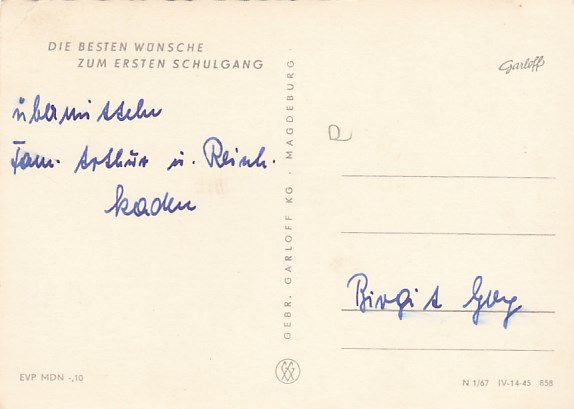 DIE BESTEN WÜNSCHE
ZUM ERSTEN SCHULGANG
übermitteln
Fam. Arthur u. Reinh.
Kaden
GEBR. GARLOFF KG · MAGDEBURG
Garloff
D
Birgit
EVP MDN -,10
N 1/67 IV-14-45 858